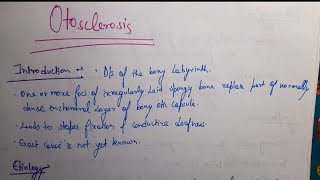 Otosclerosis
Introduction → • D/s of the bony Labyrinth.
• One or more foci of irregularly laid spongy bone replace part of normally
dense enchondral layer of bony otic capsule.
• Leads to stapes fixation & conductive deafness.
• Exact cause is not yet known.
Etiology